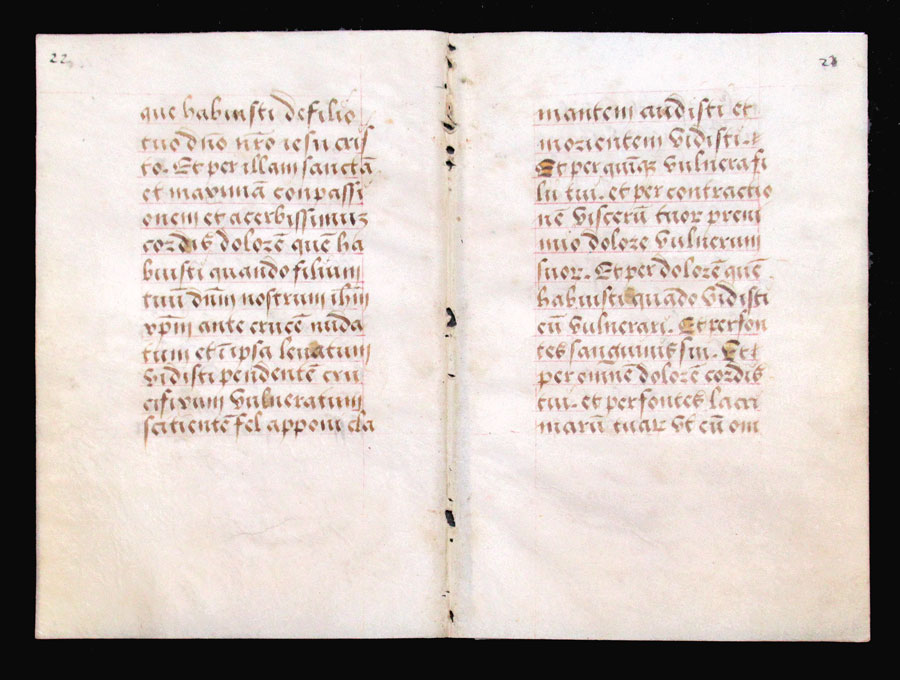 22
que habuisti de filio
tuo dño nr̃o iesu cris
to. Et per illam sanctã
et maximã conpassi
onem et acerbissimuz
cordis dolorẽ quẽ ha
buisti quando filium
tuũ dñm nostrum ihm̃
xpm̃ ante crucẽ nuda
tum et ĩ ipsa leuatum
vidisti pendentẽ cru
cifixum vulneratum
scitientẽ fel apponi cla
23
mantem audisti et
morientem vidisti.
Et per quinqꝫ vulnera fi
lii tui. et per contractio
nẽ viscerũ tuoꝝ preni
mio dolore vulnerum
suoꝝ. Et per dolorẽ quẽ
habuisti quãdo vidisti
eũ vulnerari. Et per fon
tes sanguinis sui. Et
per omnẽ dolorẽ cordis
tui. et per fontes lacri
marũ tuaꝝ vt eũ om